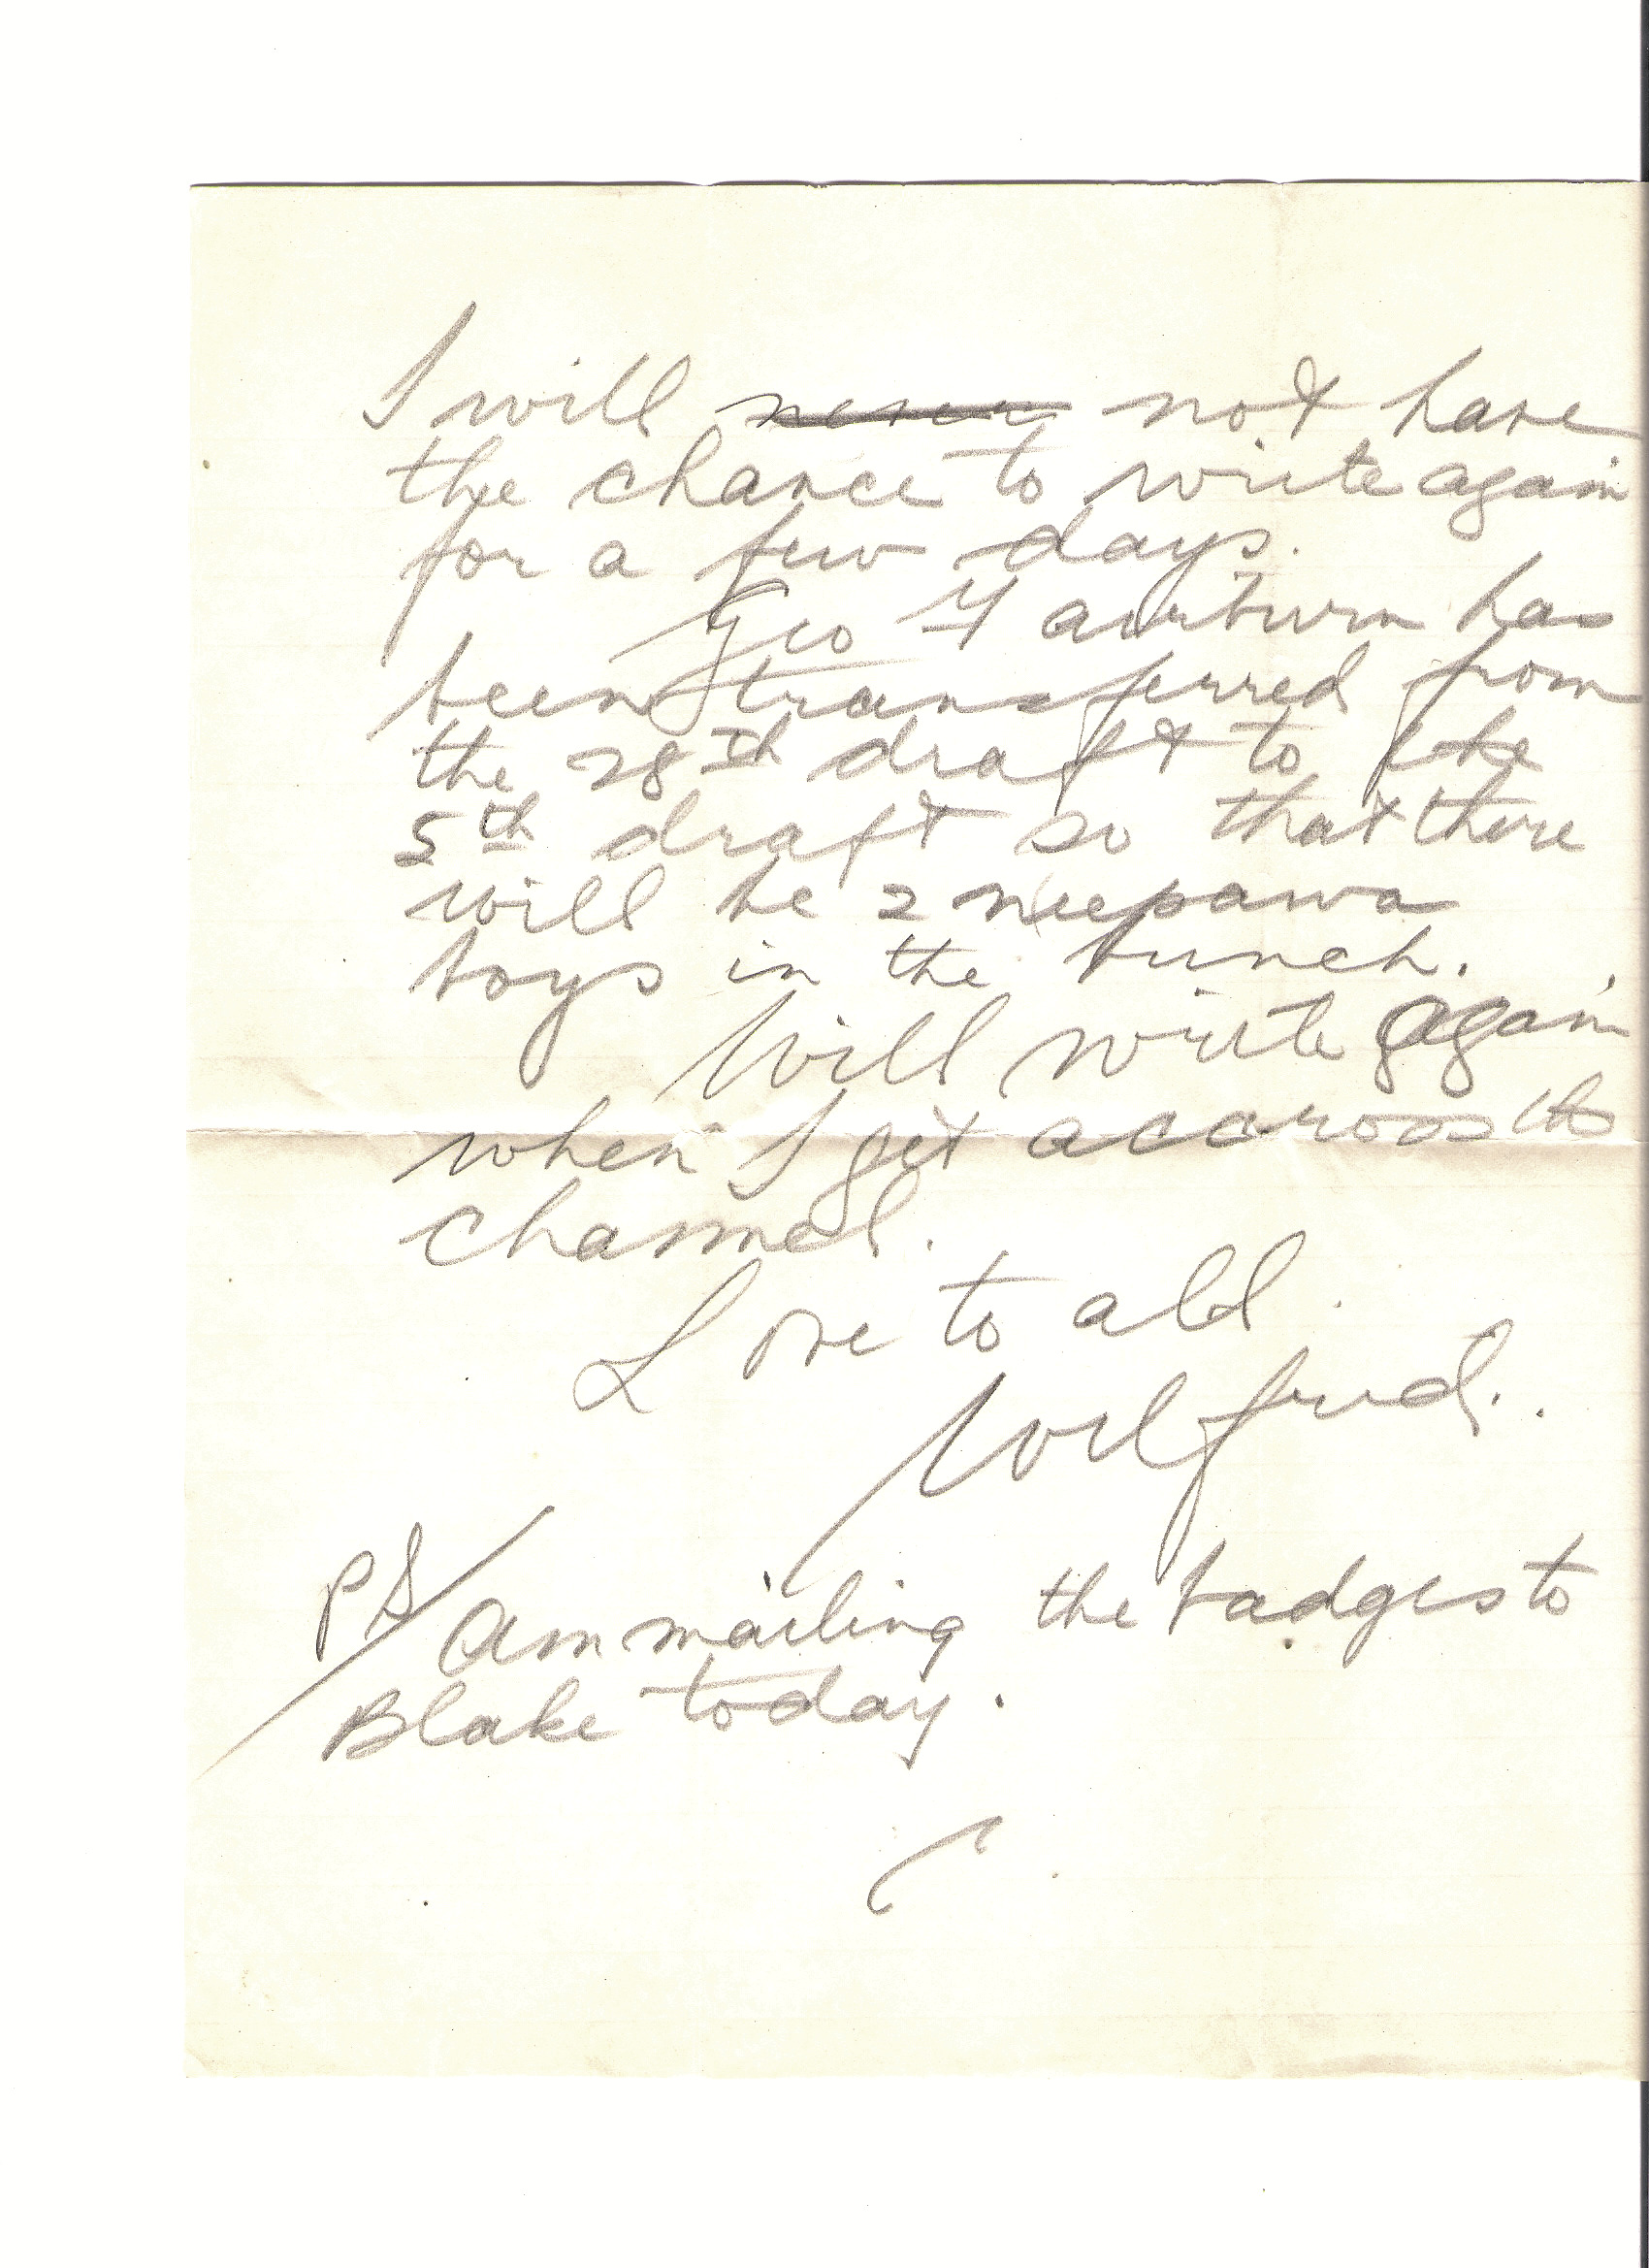 I will ~~never~~ not have
the chance to write again
for a few days.
Geo Fairburn has
been transferred from
the 28th draft to the
5th draft so that there
will be 2 neepawa
boys in the bunch.
Will write again
when I get accross the
channel.
Love to all.
Wilfred.
PS/ Am mailing the badges to
Blake today.